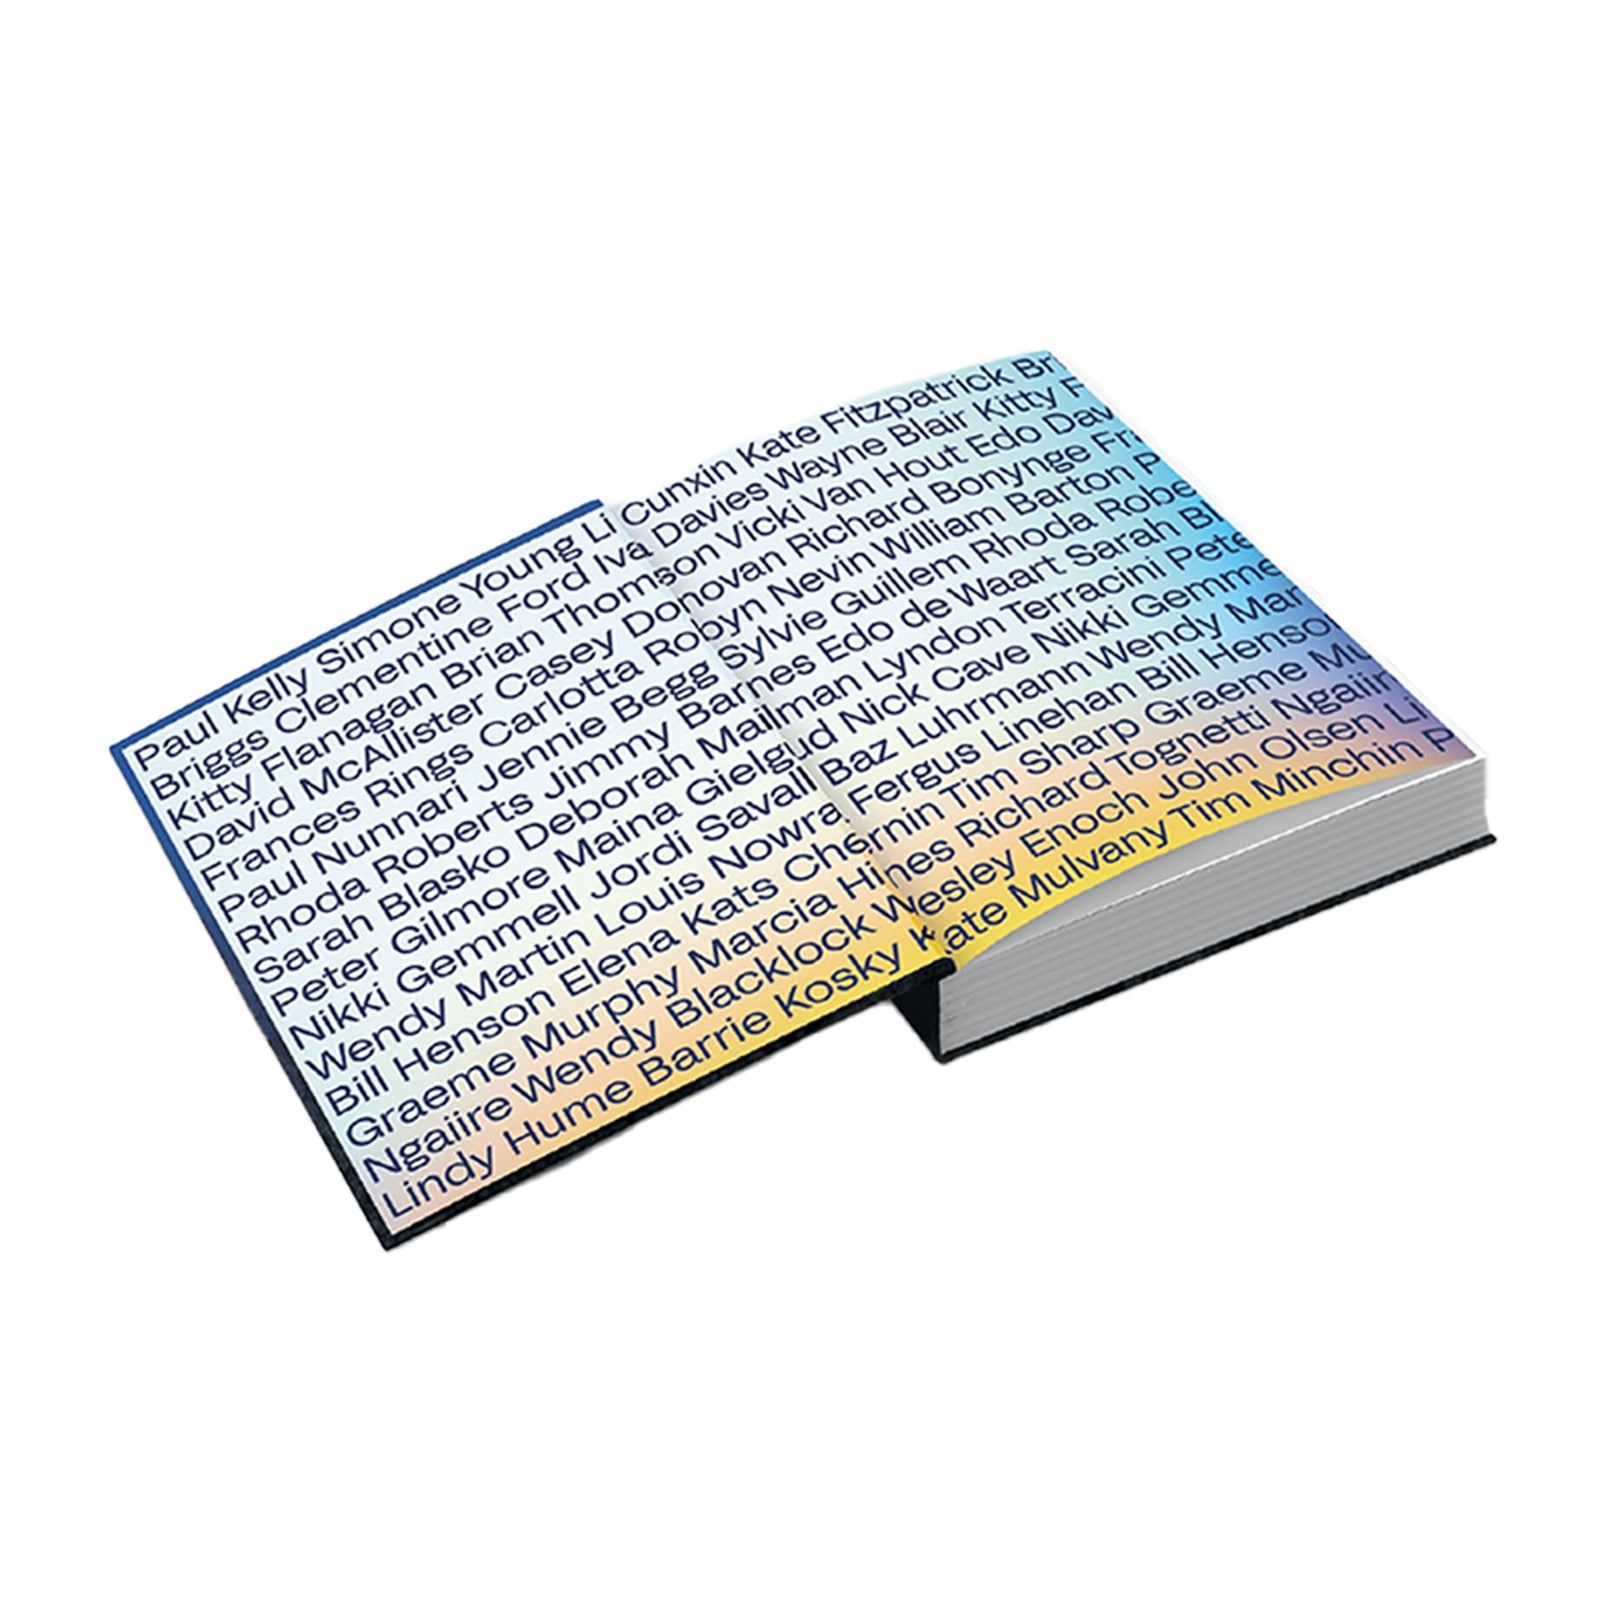 Paul Kelly Simone Young Li Cunxin Kate Fitzpatrick Bri
Briggs Clementine Ford Iva Davies Wayne Blair Kitty F
Kitty Flanagan Brian Thomson Vicki Van Hout Edo Dav
David McAllister Casey Donovan Richard Bonynge Fra
Frances Rings Carlotta Robyn Nevin William Barton P
Paul Nunnari Jennie Begg Sylvie Guillem Rhoda Robe
Rhoda Roberts Jimmy Barnes Edo de Waart Sarah Bl
Sarah Blasko Deborah Mailman Lyndon Terracini Pete
Peter Gilmore Maina Gielgud Nick Cave Nikki Gemme
Nikki Gemmell Jordi Savall Baz Luhrmann Wendy Mar
Wendy Martin Louis Nowra Fergus Linehan Bill Henso
Bill Henson Elena Kats Chernin Tim Sharp Graeme Mu
Graeme Murphy Marcia Hines Richard Tognetti Ngaiir
Ngaiire Wendy Blacklock Wesley Enoch John Olsen Li
Lindy Hume Barrie Kosky Kate Mulvany Tim Minchin P